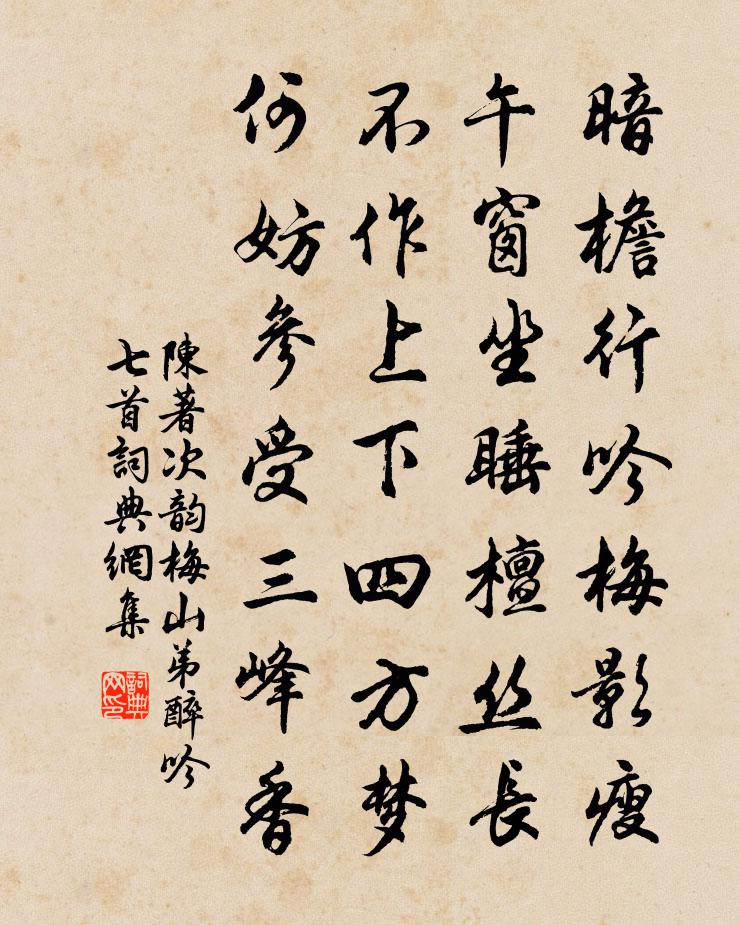 暗檐行吟梅影瘦
午窗坐睡檀丝長
不作上下四方梦
何妨參受三峰香
陳著次韵梅山弟醉吟
七首詞典網集
詞典网印